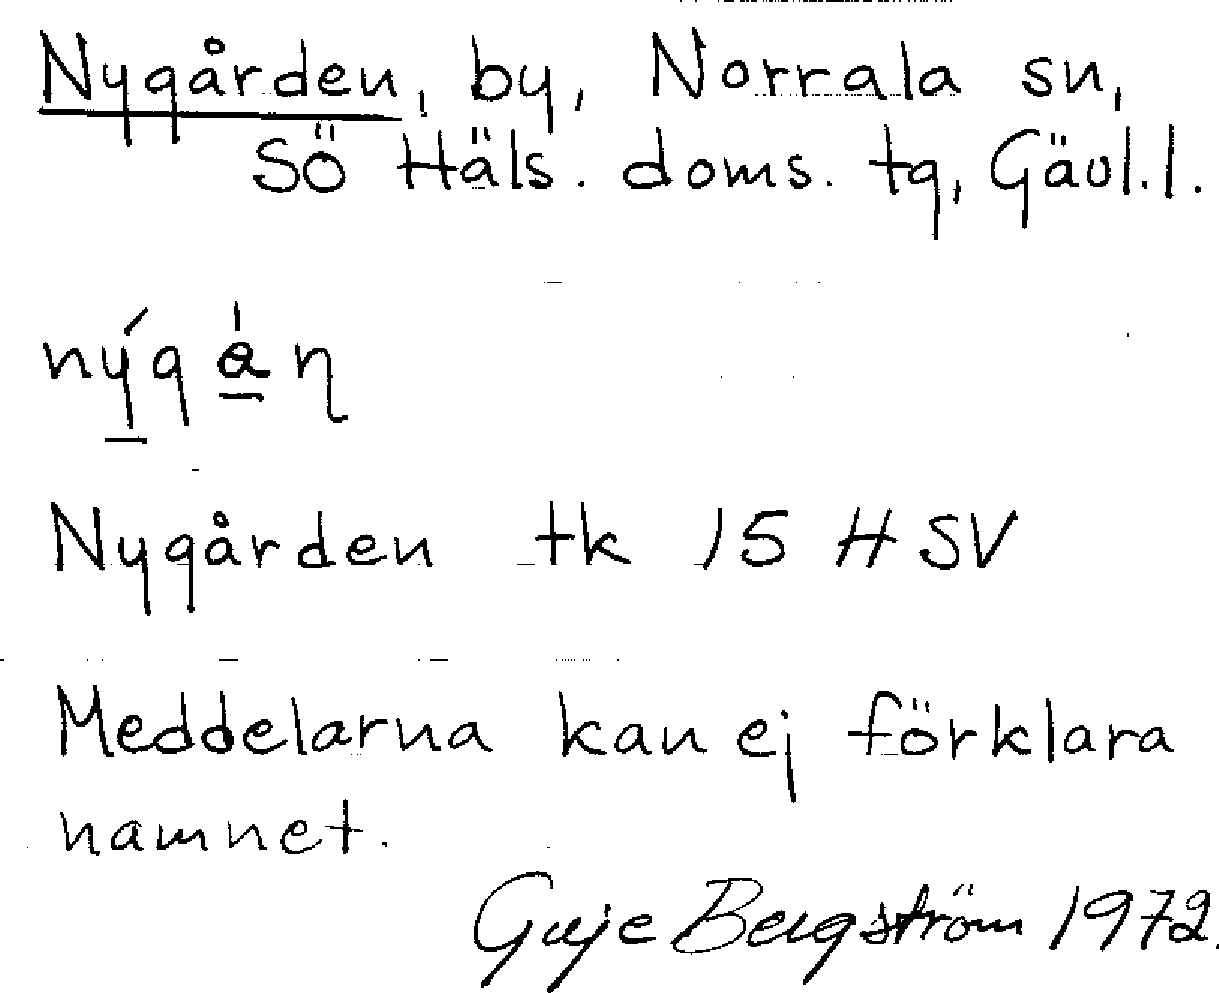 Nygården, by, Norrala sn,
Sö Häls. doms. tg, Gävl.l.
Nygården tk 15 HSV
Meddelarna kan ej förklara
namnet.
Guje Bergström 1972.